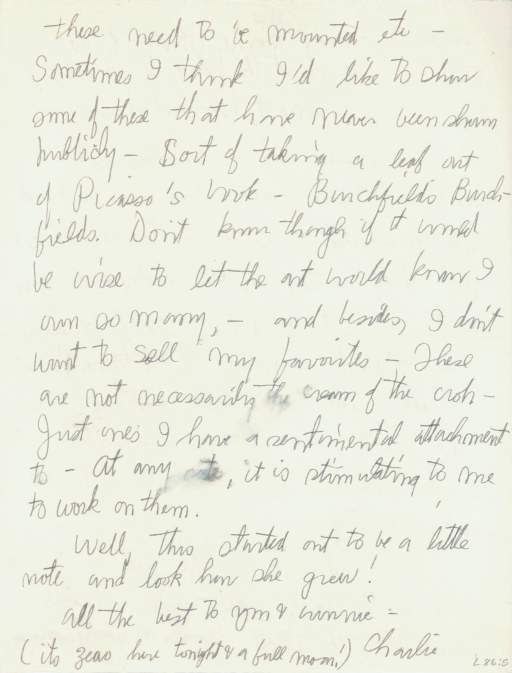 these need to be mounted etc –
Sometimes I think I'd like to show
some of these that have never been shown
publicly – Sort of taking a leaf out
of Picasso's book – Burchfield's Burch-
fields. Don't know though if it would
be wise to let the art world know I
own so many, – and besides, I don't
want to sell my favorites – These
are not necessarily the cream of the crop –
Just ones I have a sentimental attachment
to – At any rate, it is stimulating to me
to work on them.
Well, this started out to be a little
note and look how she grew!
All the best to you &
(its zero here tonight & a full moon!) Charlie